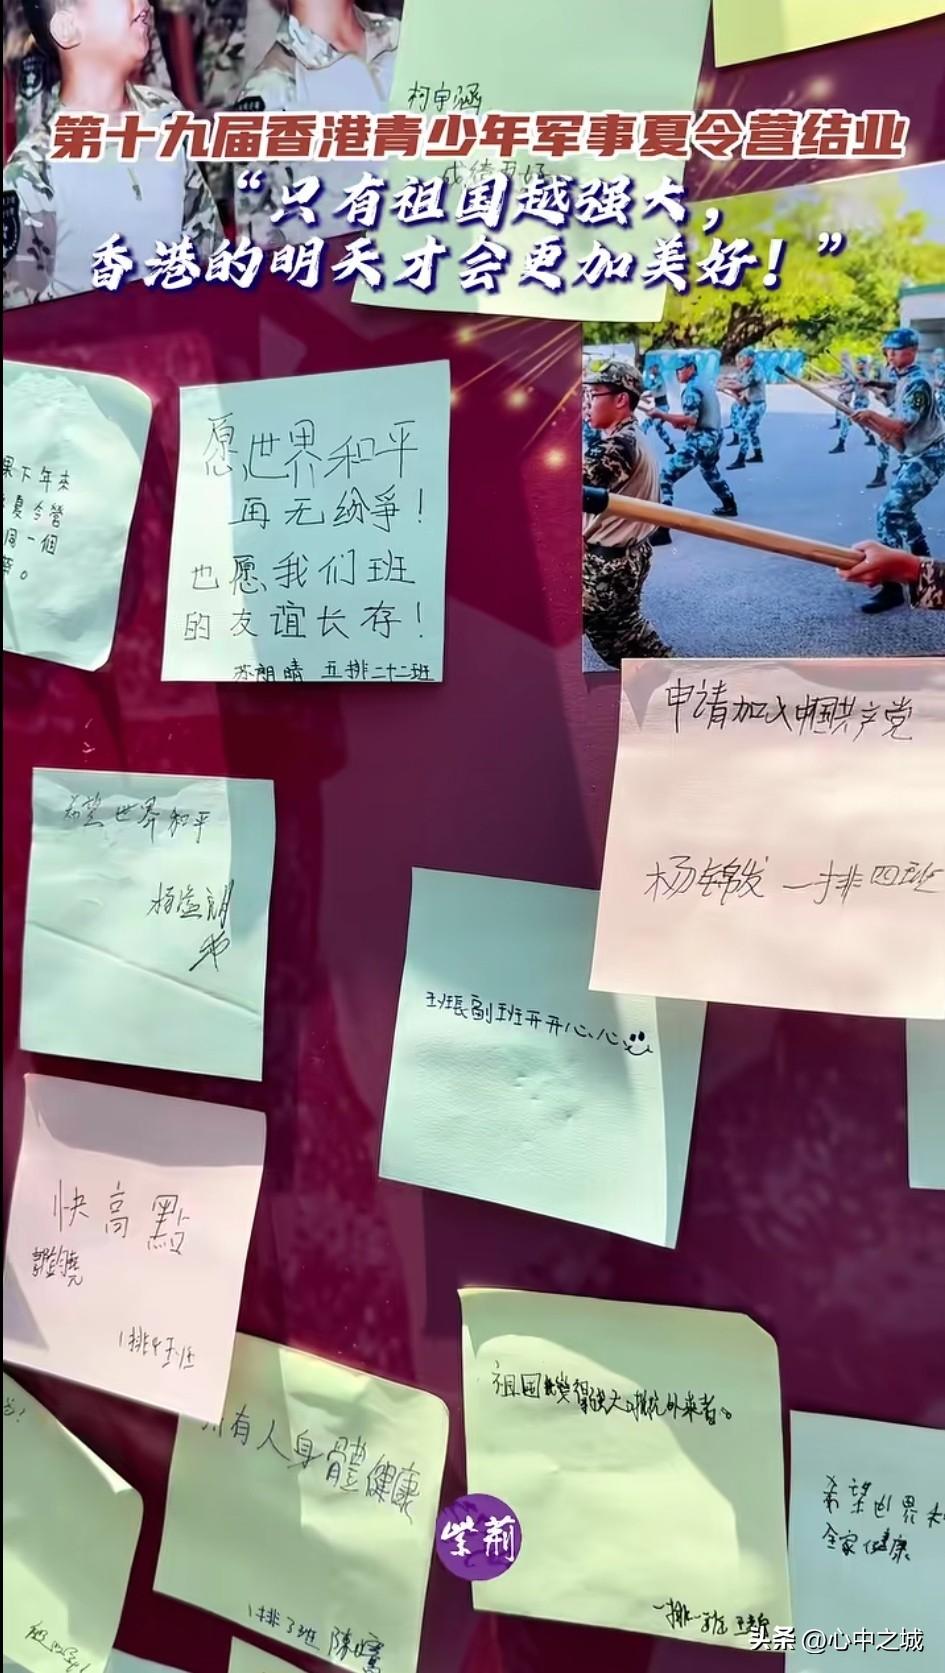 柯宇涵
第十九届香港青少年军事夏令营结业
“只有祖国越强大，
香港的明天才会更加美好！”
下年來
夏令營
同一個
愿世界和平
再无纷爭！
也愿我们班
的友谊长存！
苏朗晴 五排二十二班
申请加入中国共产党
杨锦发 一排四班
希望世界和平
班长副班开开心心
快高點
1排4班
所有人身體健康
1排3班 陳
祖国變得强大，抵抗外來者。
一排一班
希望世界和
全家健康
紫荆
头条 @心中之城